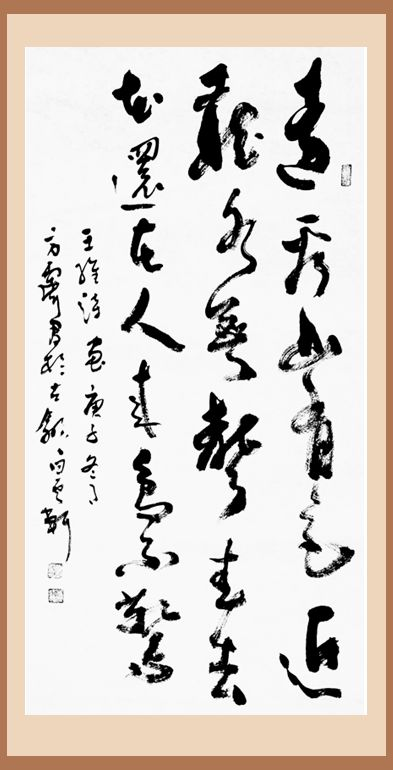 遠看山有色近
聽水無聲春去
花還在人来鳥不驚
王維詩畫庚子冬月
方書於古歙白雲軒